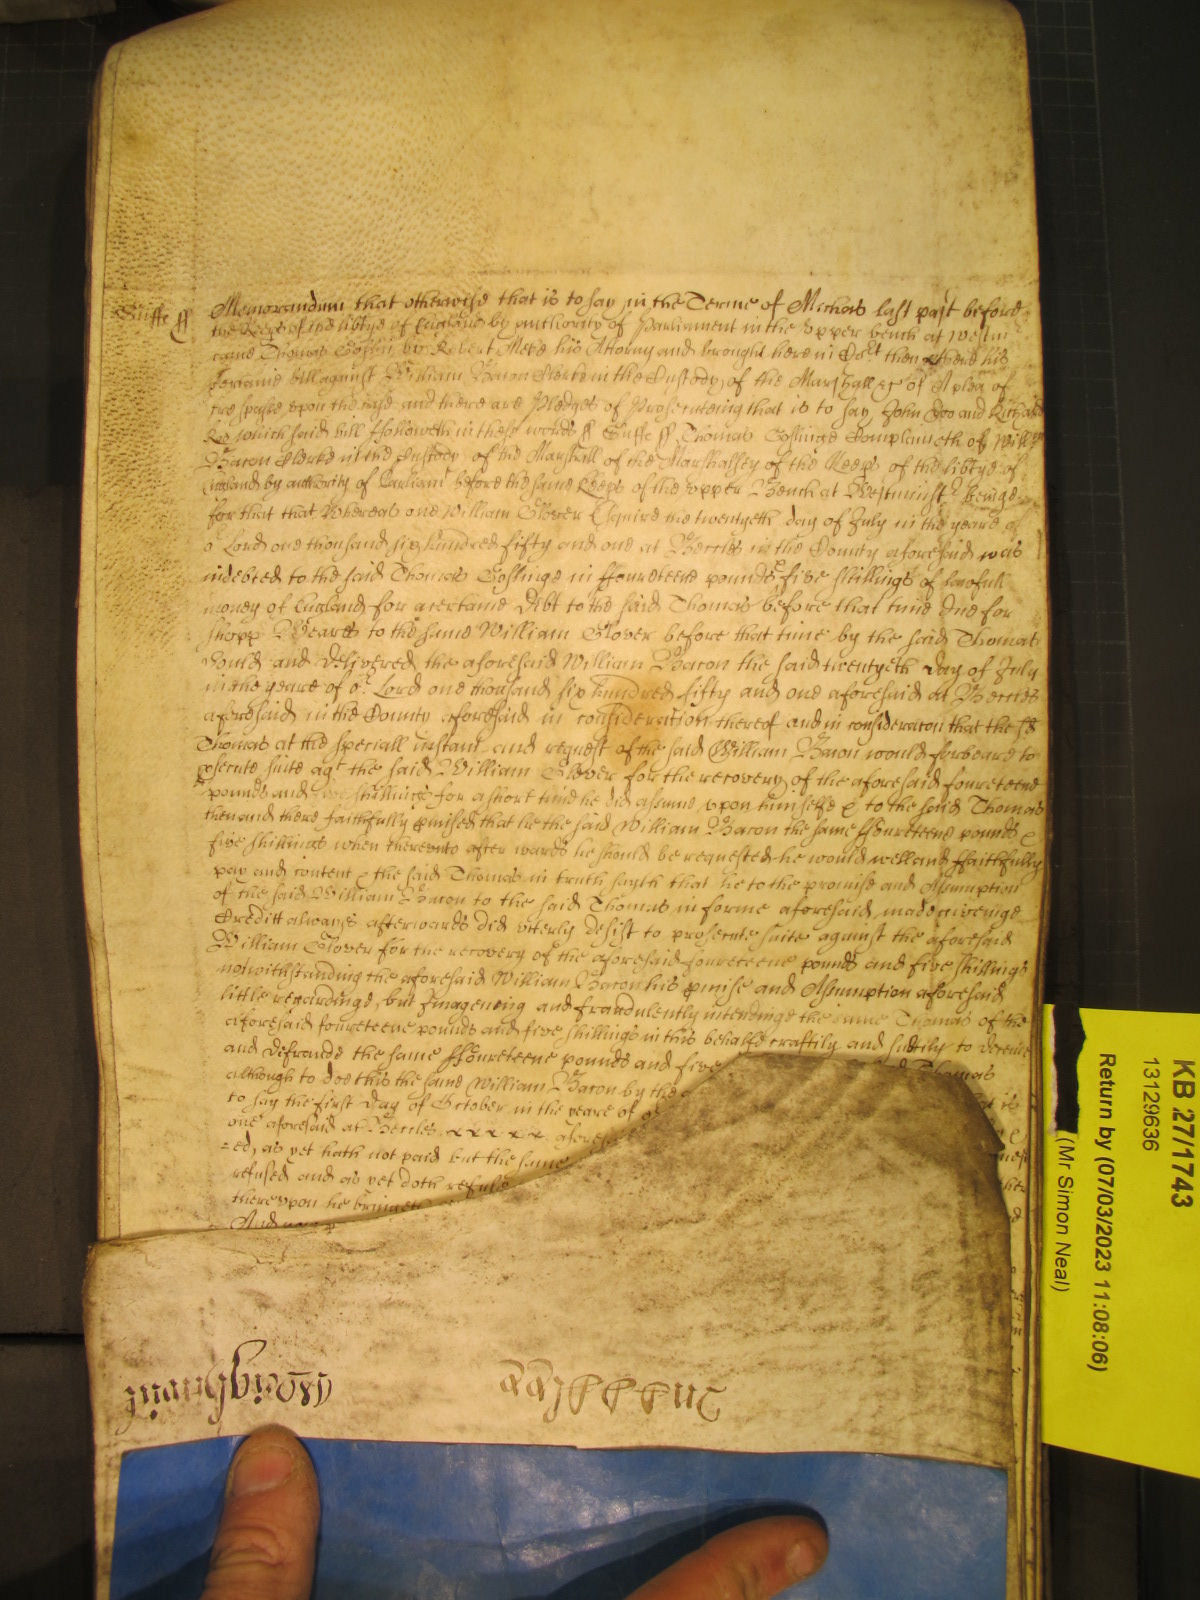 Suffe ss Memorandum that otherwise that is to say in the Terme of Michas last past before
the Keeps of the libtye of England by authority of Parliament in the Upper bench at Westm
came Thomas Gosling by Robert his Attorny and brought here in Co:rt then there his
certaine bill against William Bacon Clerke in the Custody of the Marshall &c of A plea of
trespasse upon the case and there are Pledges of Prosecuteing that is to say John Doo and Richard
Roo which said bill followeth in these words ss Suffe ss Thomas Goslinge Complaineth of Willm
Bacon Clerke in the Custody of the Marshall of the Marshallsey of the Keeps of the libtye of
England by authority of Parliam:t before the same Keeps of the Upper Bench at Westminst:r beinge
for that that Whereas one William Glover Esquire the twentyeth day of July in the yeare of
o:r Lord one thousand six hundred fifty and one at Beccles in the County aforesaid was
indebted to the said Thomas Goslinge in ffoureteene pounds five shillings of lawfull
money of England for a certaine Debt to the said Thomas before that time due for
shopp Weares to the same William Glover before that time by the said Thomas
sould and delivered the aforesaid William Bacon the said twentyeth day of July
in the yeare of o:r Lord one thousand six hundred fifty and one aforesaid at Beccles
aforesaid in the County aforesaid in consideration thereof and in consideracon that the sd
Thomas at the speciall instant and request of the said William Bacon would forbeare to
psecute suite ag:t the said William Glover for the recovery of the aforesaid foureteene
pounds and five shillings for a short time he did assume upon himselfe & to the said Thomas
then and there faithfully pmised that he the said William Bacon the same ffoureteene pounds &
five shillings when thereunto after wards he should be requested he would well and ffaithfully
pay and content & the said Thomas in truth sayth that he to the promise and Assumption
of the said William Bacon to the said Thomas in forme aforesaid made giveinge
Creditt always afterwards did utterly desist to prosecute suite against the aforesaid
William Glover for the recovery of the aforesaid foureteene pounds and five shillings
notwithstanding the aforesaid William Bacon his pmise and Assumption aforesaid
little regardinge, but Imagening and fraudulently intendinge the same Thomas of the
aforesaid foureteene pounds and five shillings in this behalfe craftily and subtily to deceive
and defraude the same ffoureteene pounds and five Thomas
although to doe this the same William Bacon by the is
to say the first day of October in the yeare of o:r
one aforesaid at Beccles x x x x x afores
-ed, as yet hath not paid but the same
refused and as yet doth refuse
thereupon he bringeth
And now
KB 27/1743
13129636
Return by (07/03/2023 11:08:06)
(Mr Simon Neal)